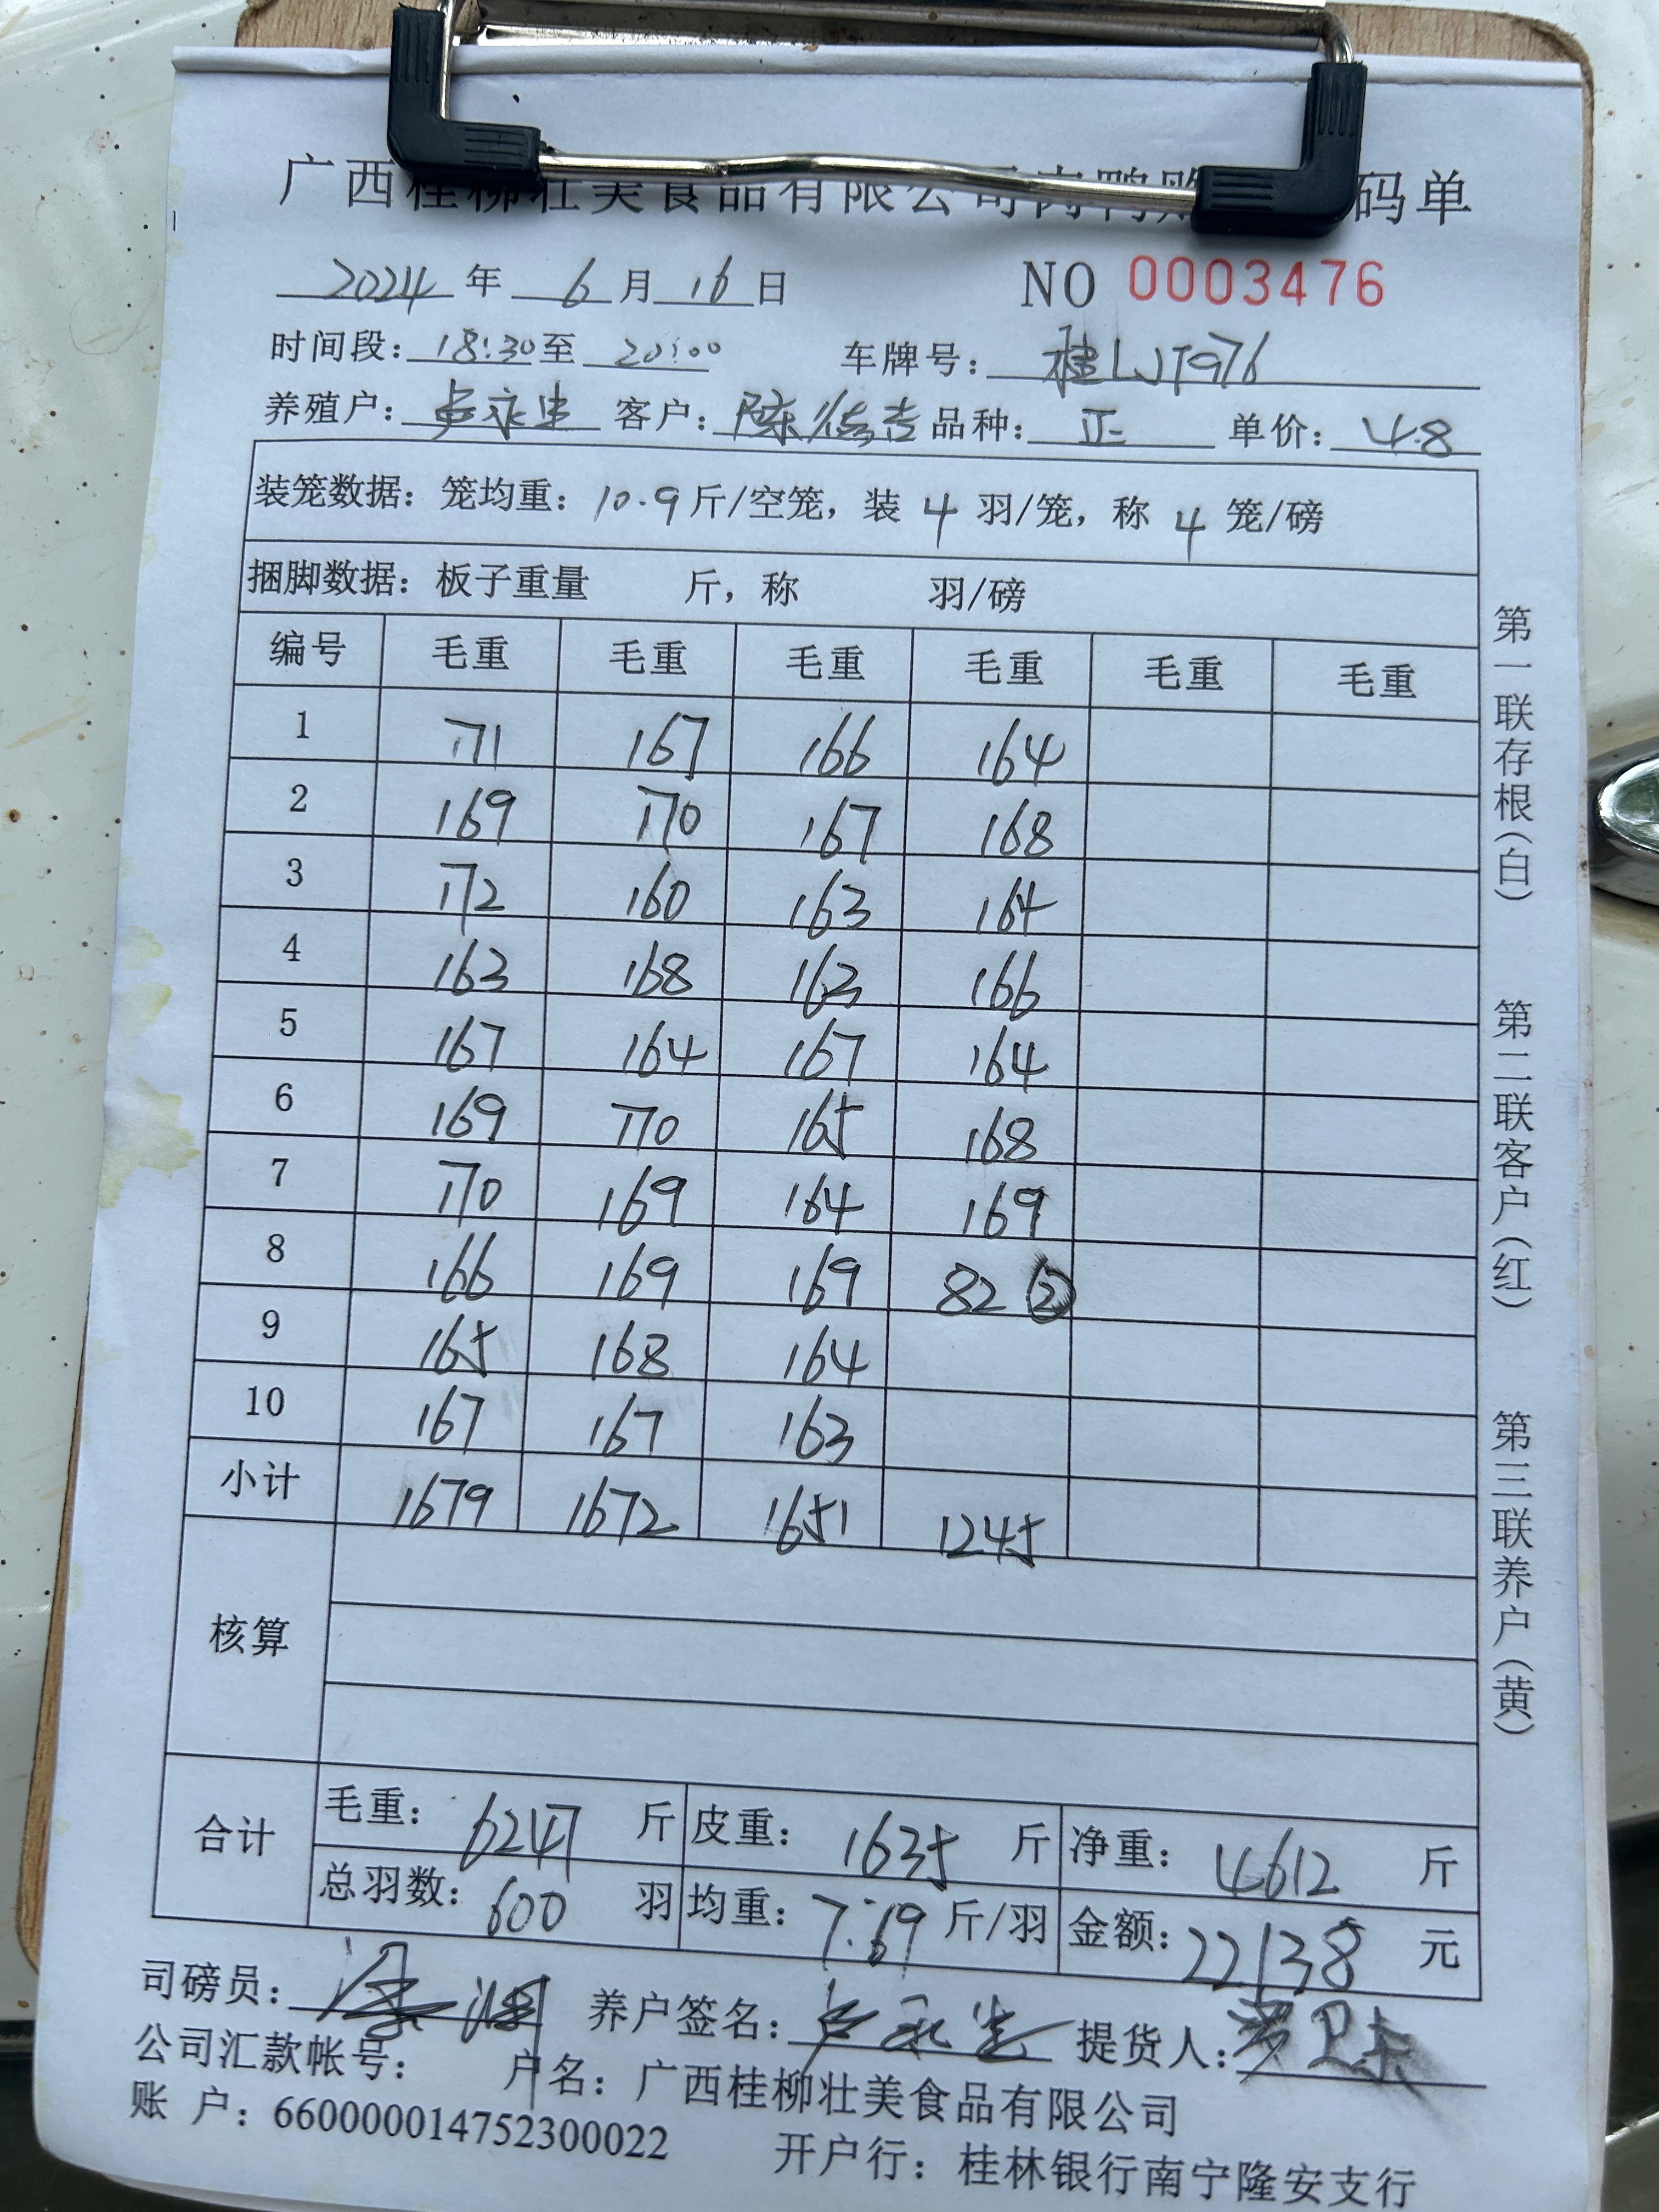 广西桂柳壮美食品有限公司肉鸭购 码单
2024 年 6 月 16 日 NO 0003476
时间段: 18:30 至 20:00 车牌号: 桂LJT976
养殖户: 卢永生 客户: 陈德吉 品种: 正 单价: 4.8
装笼数据: 笼均重: 10.9 斤/空笼, 装 4 羽/笼, 称 4 笼/磅
捆脚数据: 板子重量 斤, 称 羽/磅
编号 毛重 毛重 毛重 毛重 毛重 毛重
1 171 167 166 164
2 169 170 167 168
3 172 160 163 164
4 163 168 163 166
5 167 164 167 164
6 169 170 165 168
7 170 169 164 169
8 166 169 169 82 ②
9 165 168 164
10 167 167 163
小计 1679 1672 1651 1245
核算
合计 毛重: 6247 斤 皮重: 1635 斤 净重: 4612 斤
总羽数: 600 羽 均重: 7.69 斤/羽 金额: 22138 元
司磅员: 养户签名: 卢永生 提货人:
公司汇款帐号: 户名: 广西桂柳壮美食品有限公司
账 户: 660000014752300022 开户行: 桂林银行南宁隆安支行
第一联存根(白) 第二联客户(红) 第三联养户(黄)